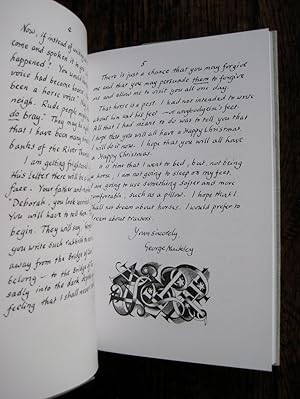 2
Now, if instead of writing
come and spoken it to
happened? You would
voice had become hoarse
been a horse voice.
neigh. Rude people might
do bray.) They may be
that I have been many
banks of the River Thames
I am getting frightened
this letter there will be a
face. Your father and mother
Deborah, you look worried
You will have to tell them
begin. They will say,
you write such rubbish to
away from the Bridge of
belong — to the Bridge of
sadly into the dark depths
feeling that I shall never
5
There is just a chance that you may forgive
me and that you may persuade them to forgive
me and allow me to visit you all one day.
That horse is a pest. I had not intended to write
about him and his feet — or anybody else's feet.
All that I had meant to do was to tell you that
I hope that you will all have a Happy Christmas.
I will do it now. I hope that you will all have
a Happy Christmas.
It is time that I went to bed, but, not being
a horse, I am not going to sleep on my feet.
I am going to use something softer and more
comfortable, such as a pillow. I hope that I
shall not dream about horses. I would prefer to
dream about trousers.
Yours sincerely
George Mackley